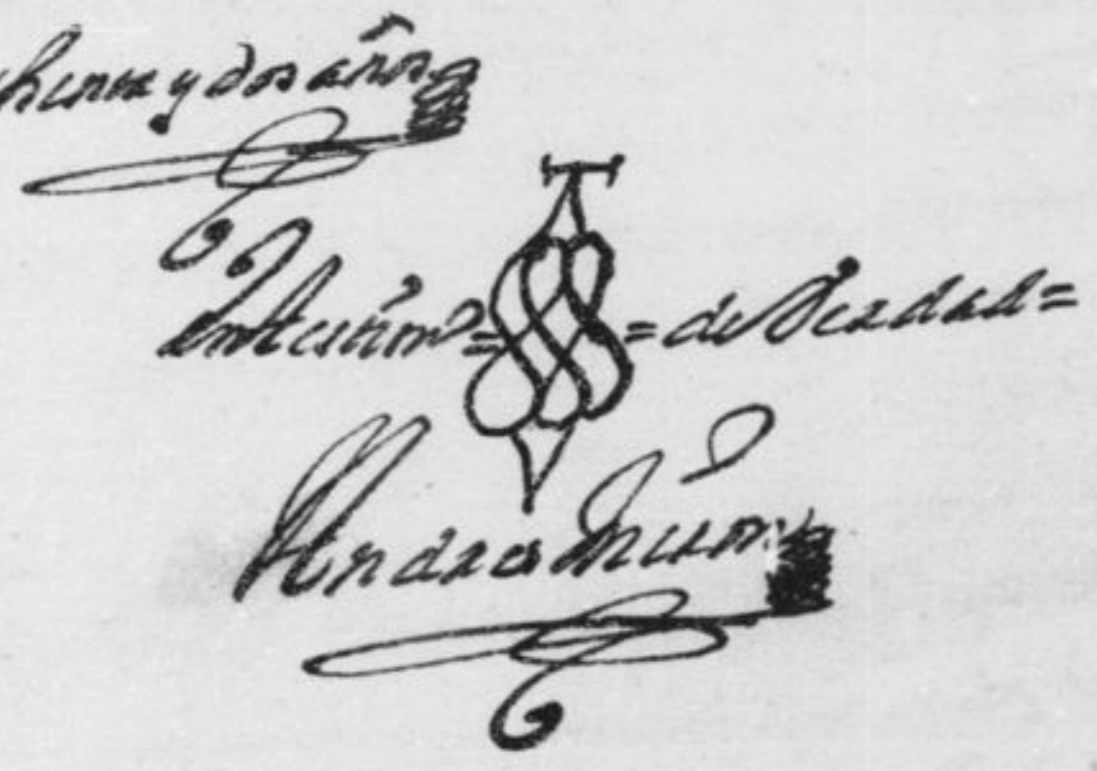 y dos años
en testim.º = = de Verdad =
Andres Muñoz